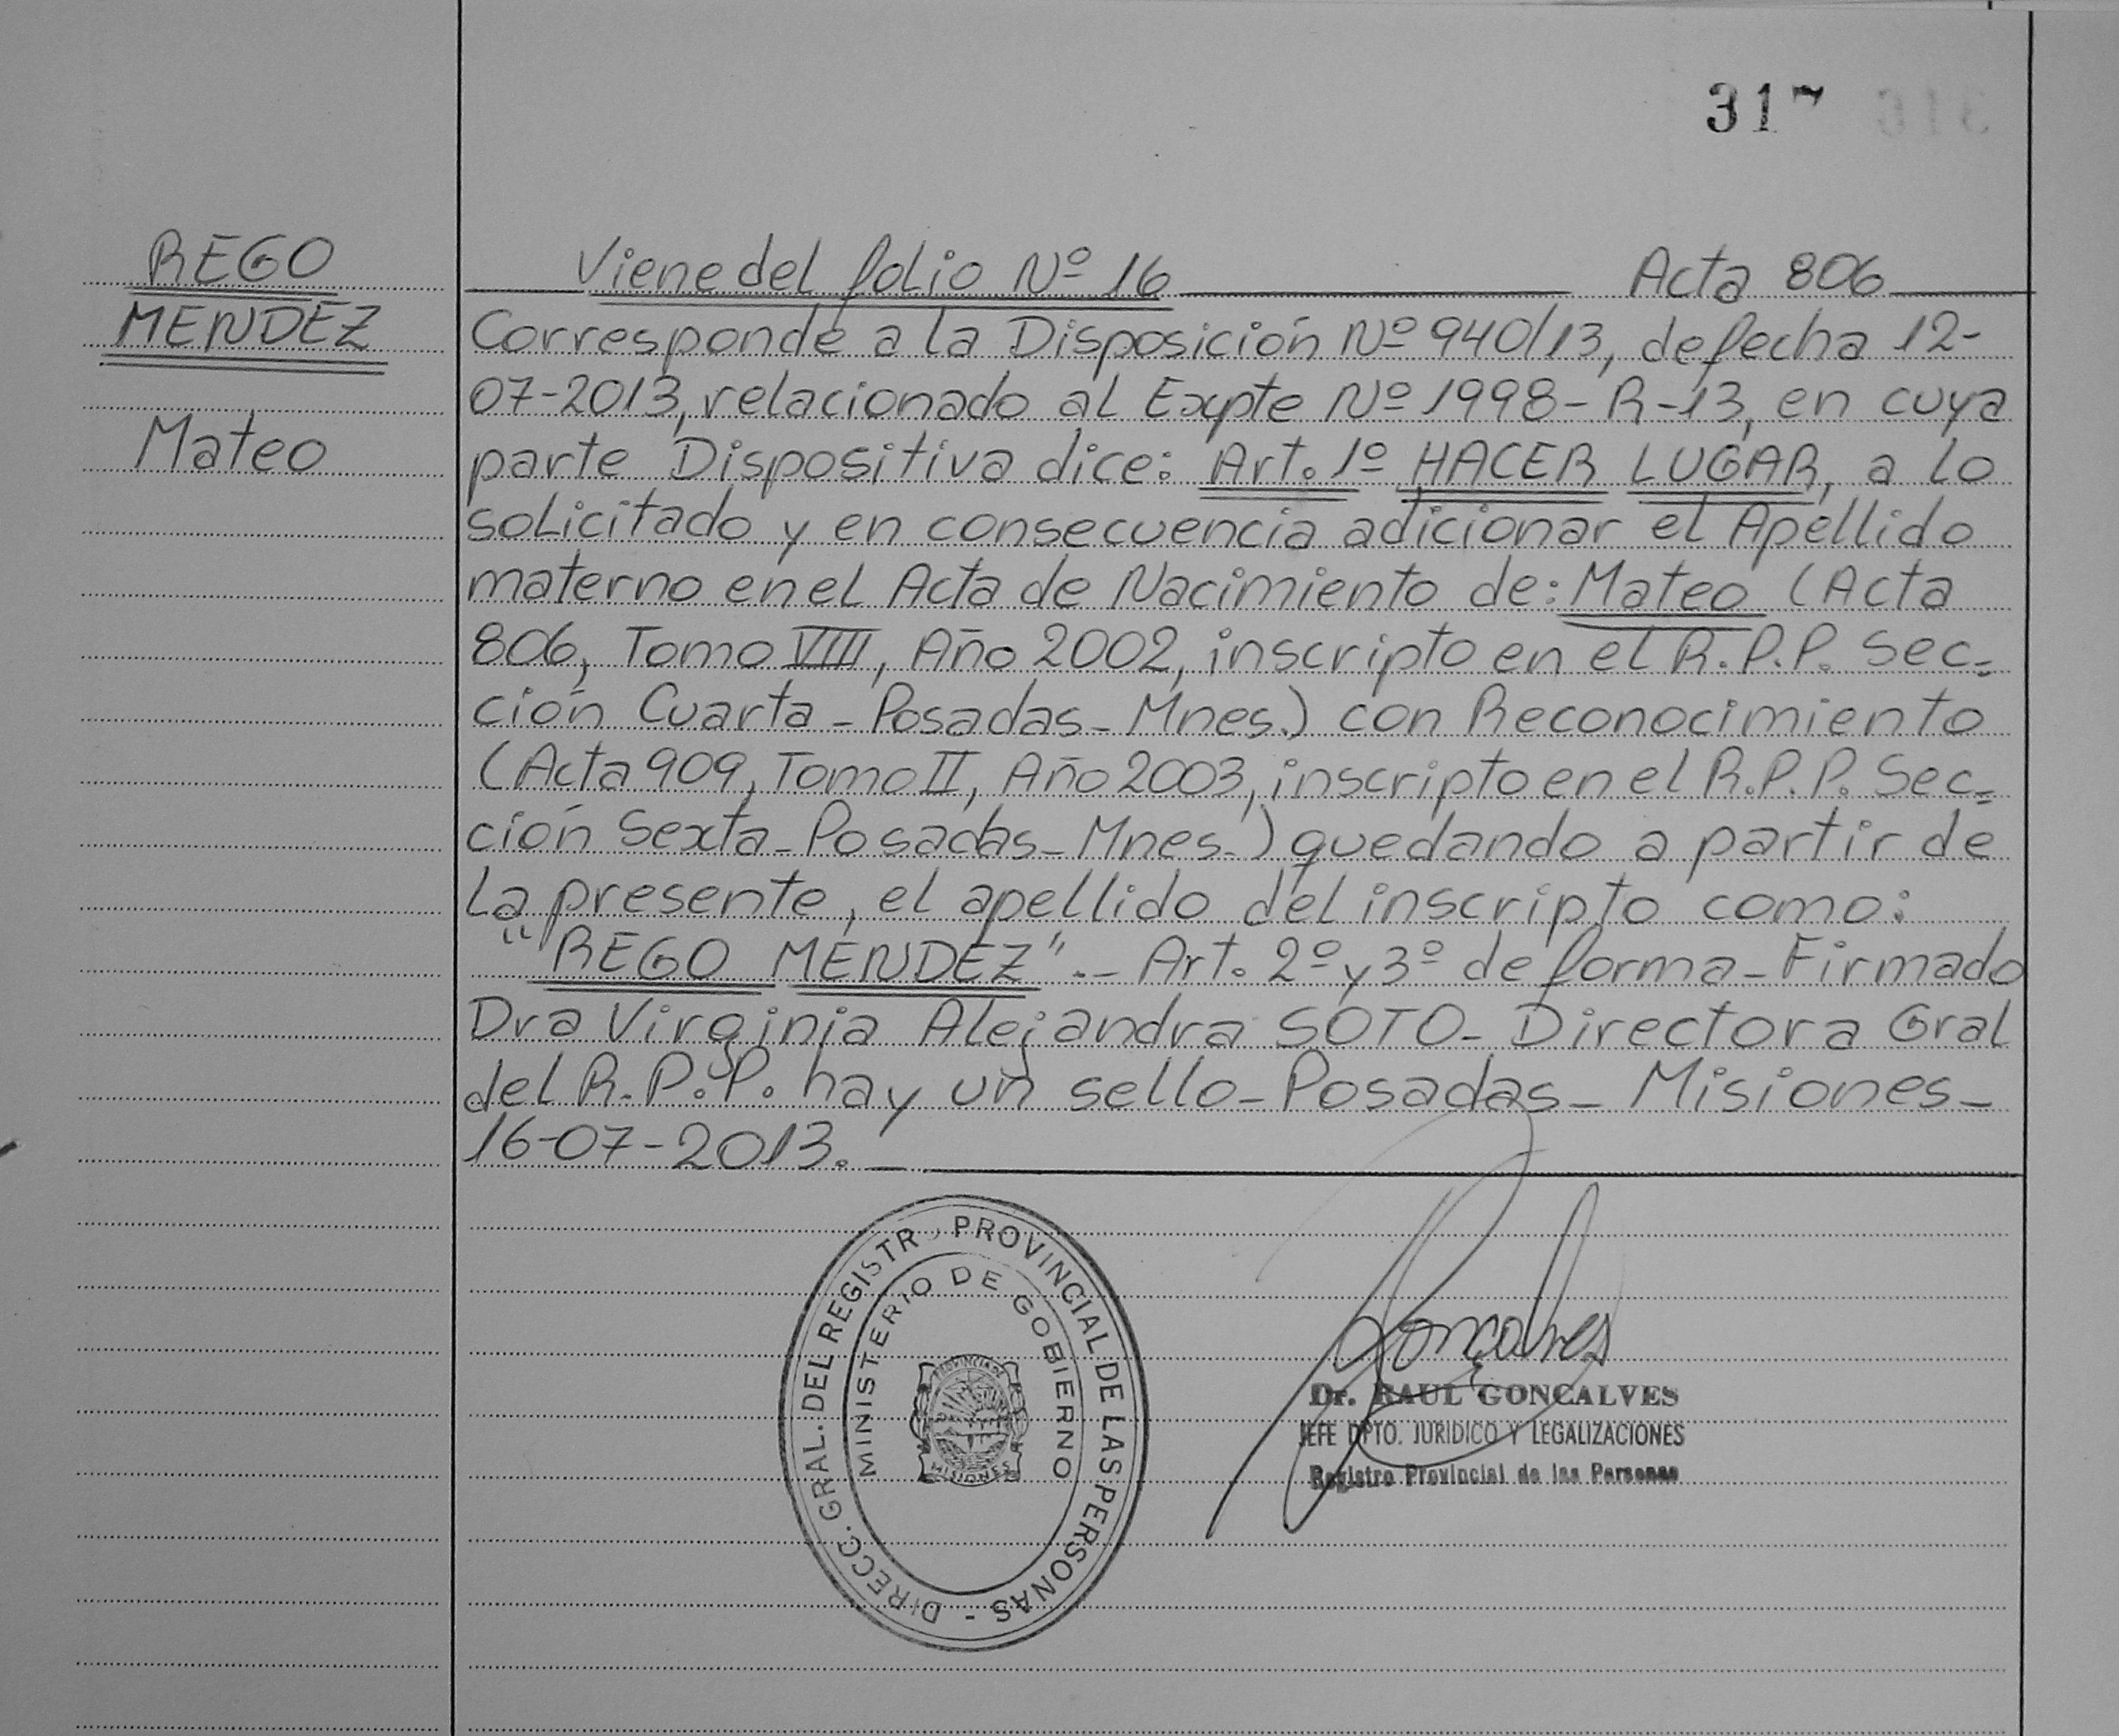 317
REGO
MENDEZ
Mateo
Viene del folio Nº 16 Acta 806
Corresponde a la Disposición Nº 940/13, de fecha 12-
07-2013, relacionado al Expte Nº 1998-R-13, en cuya
parte Dispositiva dice: Art. 1º HACER LUGAR, a lo
solicitado y en consecuencia adicionar el Apellido
materno en el Acta de Nacimiento de: Mateo (Acta
806, Tomo VIII, Año 2002, inscripto en el R.P.P. Sec-
ción Cuarta-Posadas-Mnes.) con Reconocimiento
(Acta 909, Tomo II, Año 2003, inscripto en el R.P.P. Sec-
ción Sexta-Posadas-Mnes-) quedando a partir de
la presente, el apellido del inscripto como:
"REGO MENDEZ".- Art. 2º y 3º de forma-Firmado
Dra Virginia Alejandra SOTO- Directora Gral
del R.P.P. hay un sello-Posadas-Misiones-
16-07-2013.
DIRECC. GRAL. DEL REGISTR PROVINCIAL DE LAS PERSONAS -
MINISTERIO DE GOBIERNO
PROVINCIA DE
MISIONES
Goncalves
Dr. RAUL GONCALVES
JEFE DPTO. JURIDICO Y LEGALIZACIONES
Registro Provincial de las Personas